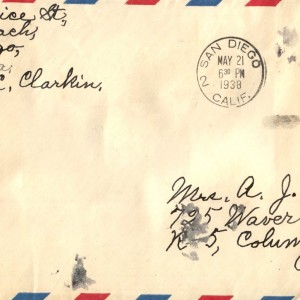 ice St,
each,
go,
C, Clarkin,
SAN DIEGO
2
MAY 21
6 30 PM
1938
CALIF.
Mrs. A. J.
725 Waver
R 5, Colum